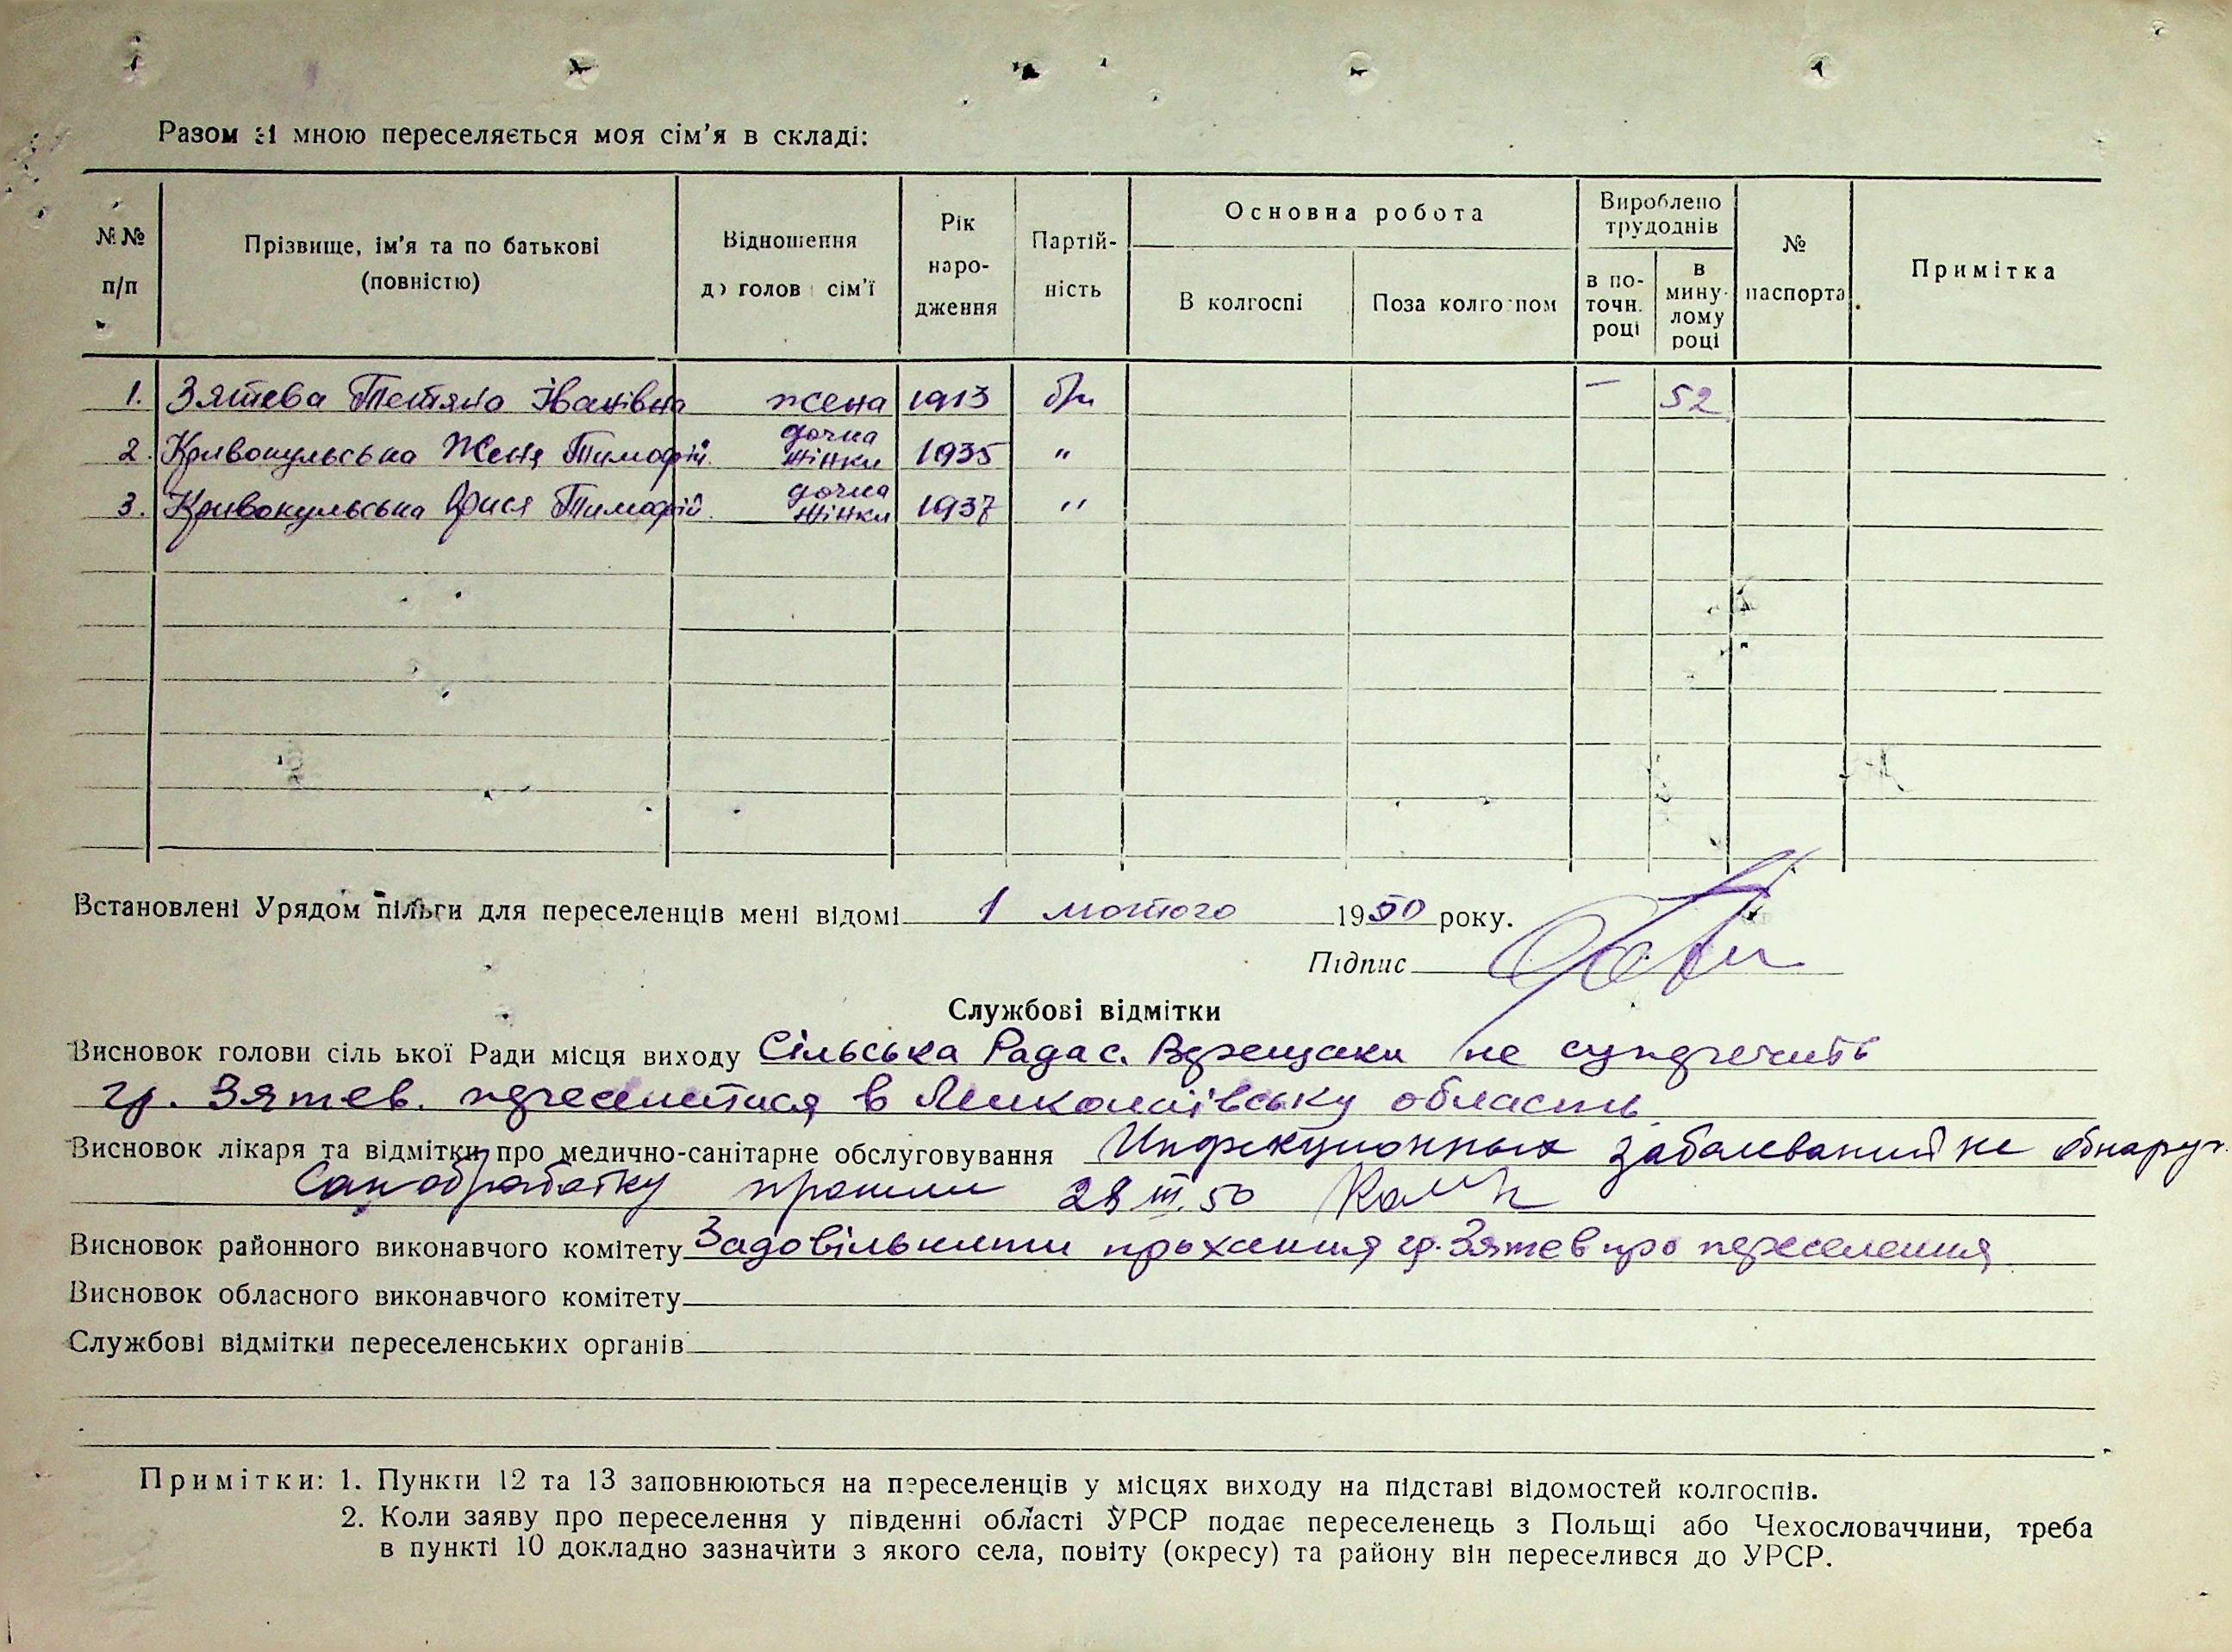 Разом зі мною переселяється моя сім'я в складі:
№№ п/п | Прізвище, ім'я та по батькові (повністю) | Відношення до голови сім'ї | Рік народження | Партійність | Основна робота | Вироблено трудоднів | № паспорта | Примітка
В колгоспі | Поза колгоспом | в поточн. році | в минулому році
1. Зятева Тетяна Іванівна жена 1913 б/п — 52
2. Кривокульська Женя Тимофій. дочка жінки 1935 "
3. Кривокульська Орися Тимофій. дочка жінки 1937 "
Встановлені Урядом пільги для переселенців мені відомі 1 лютого 1950 року.
Підпис
Службові відмітки
Висновок голови сільської Ради місця виходу Сільська Рада с. Верещаки не суперечить
гр. Зятев. переселитися в Миколаївську область
Висновок лікаря та відмітки про медично-санітарне обслуговування Инфекционных заболеваний не обнаруж.
Санобработку прошли 28 III. 50
Висновок районного виконавчого комітету Задовільнити прохання гр. Зятев про переселення
Висновок обласного виконавчого комітету
Службові відмітки переселенських органів
Примітки: 1. Пункти 12 та 13 заповнюються на переселенців у місцях виходу на підставі відомостей колгоспів.
2. Коли заяву про переселення у південні області УРСР подає переселенець з Польщі або Чехословаччини, треба
в пункті 10 докладно зазначити з якого села, повіту (окресу) та району він переселився до УРСР.